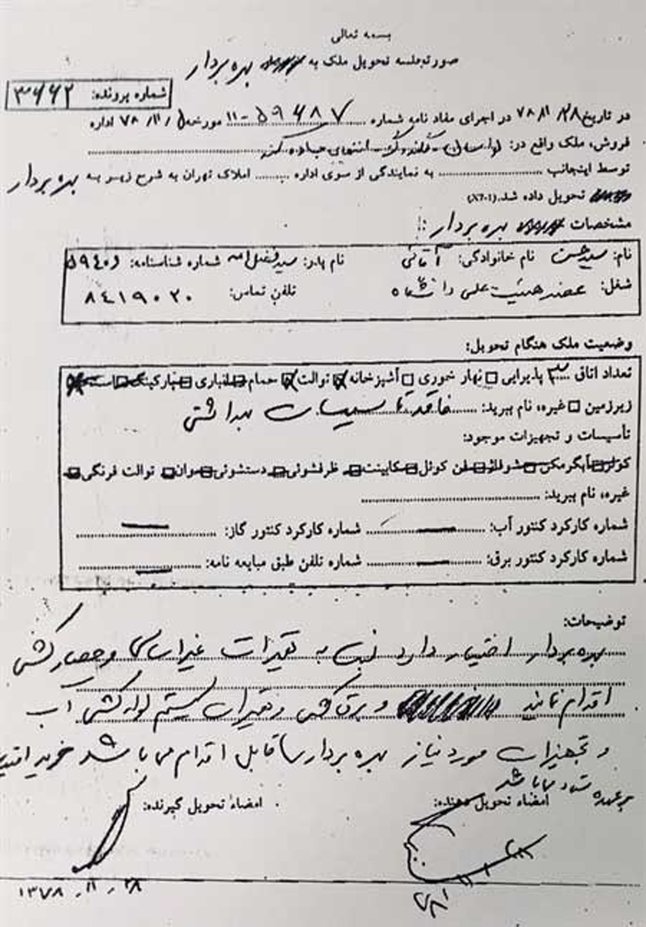 بسمه تعالی
صورتجلسه تحویل ملک به بهره بردار
شماره پرونده: ۳۶۶۲
در تاریخ ۷۸/۱۱/۲۸ در اجرای مفاد نامه شماره ۵۹۴۸۷-۱۱ مورخه ۷۸/۱۱/۵ اداره
فروش، ملک واقع در: لواسان - گلندوک - انتهای جاده کند
توسط اینجانب به نمایندگی از سوی اداره املاک تهران به شرح زیر به بهره بردار
تحویل داده شد.
مشخصات بهره بردار:
نام: سید حسن نام خانوادگی: آقائی نام پدر: سید فضل اله شماره شناسنامه: ۵۹۴۰۶
شغل: عضو هیئت علمی دانشگاه تلفن تماس: ۸۴۱۹۰۲۰
وضعیت ملک هنگام تحویل:
تعداد اتاق ۳ پذیرایی نهار خوری آشپزخانه توالت حمام انباری پارکینگ
زیرزمین غیره، نام ببرید: فاقد تأسیسات بهداشتی
تأسیسات و تجهیزات موجود:
کولر آبگرمکن شوفاژ فن کوئل کابینت ظرفشوئی دستشوئی وان توالت فرنگی
غیره، نام ببرید:
شماره کارکرد کنتور آب: — شماره کارکرد کنتور گاز: —
شماره کارکرد کنتور برق: — شماره تلفن طبق مبایعه نامه: —
توضیحات:
بهره بردار اختیار دارد نسبت به تغییرات غیراساسی و حصارکشی
اقدام نمایند و برق کشی و تعمیرات سیستم لوله کشی آب
و تجهیزات مورد نیاز بهره بردار قابل اقدام می باشد خرید
بر عهده ستاد می باشد
امضاء تحویل دهنده: امضاء تحویل گیرنده:
۷۸/۱۱/۲۸
۱۳۷۸/۱۱/۲۸